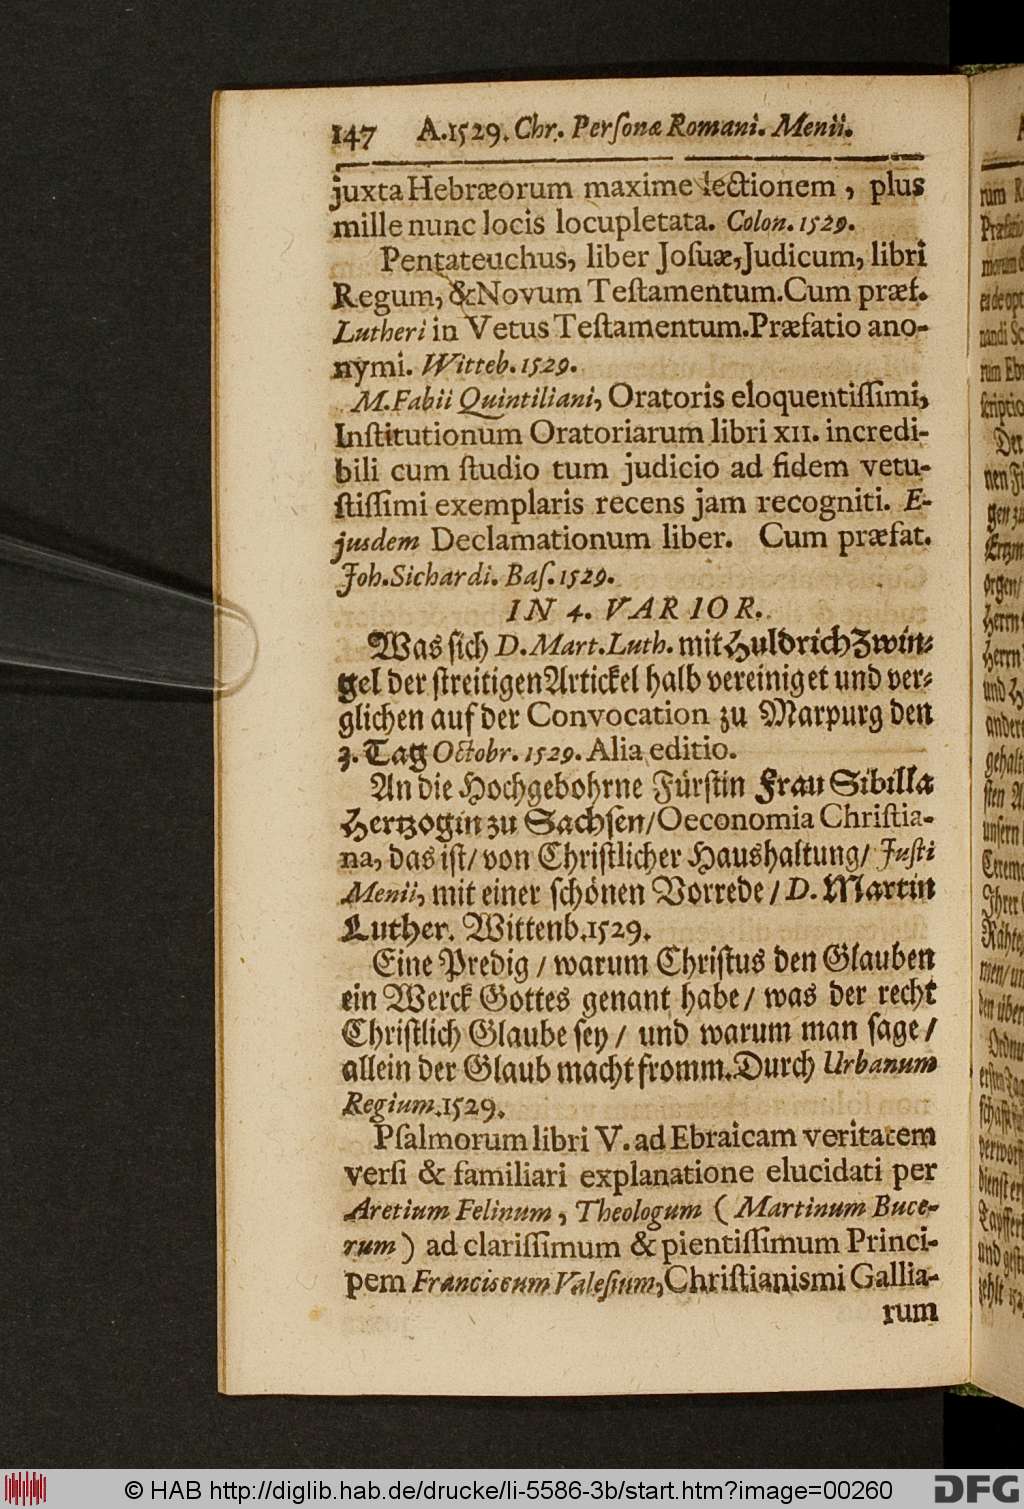 147 A.1529. Chr. Personæ Romani. Menii.
juxta Hebræorum maxime lectionem, plus
mille nunc locis locupletata. Colon. 1529.
Pentateuchus, liber Josuæ, Judicum, libri
Regum, & Novum Testamentum. Cum præf.
Lutheri in Vetus Testamentum. Præfatio ano-
nymi. Witteb. 1529.
M. Fabii Quintiliani, Oratoris eloquentissimi,
Institutionum Oratoriarum libri XII. incredi-
bili cum studio tum judicio ad fidem vetu-
stissimi exemplaris recens jam recogniti. E-
jusdem Declamationum liber. Cum præfat.
Joh. Sichardi. Bas. 1529.
IN 4. VARIOR.
Was sich D. Mart. Luth. mit Huldrich Zwin-
gel der streitigen Artickel halb vereiniget und ver-
glichen auf der Convocation zu Marpurg den
3. Tag Octobr. 1529. Alia editio.
An die Hochgebohrne Fürstin Frau Sibilla
Hertzogin zu Sachsen/ Oeconomia Christia-
na, das ist/ von Christlicher Haushaltung/ Justi
Menii, mit einer schönen Vorrede / D. Martin
Luther. Wittenb. 1529.
Eine Predig / warum Christus den Glauben
ein Werck Gottes genant habe / was der recht
Christlich Glaube sey / und warum man sage /
allein der Glaub macht fromm. Durch Urbanum
Regium. 1529.
Psalmorum libri V. ad Ebraicam veritatem
versi & familiari explanatione elucidati per
Aretium Felinum, Theologum (Martinum Buce-
rum) ad clarissimum & pientissimum Princi-
pem Franciscum Valesium, Christianismi Gallia-
rum
© HAB http://diglib.hab.de/drucke/li-5586-3b/start.htm?image=00260
DFG